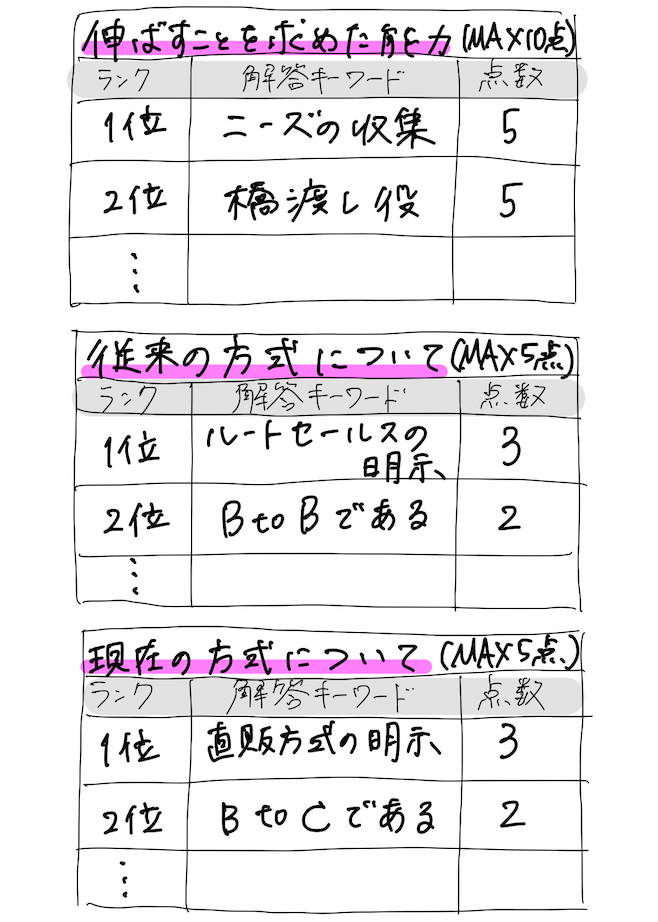 伸ばすことを求めた能力(MAX10点)
ランク 解答キーワード 点数
1位 ニーズの収集 5
2位 橋渡し役 5
⋮
従来の方式について(MAX5点)
ランク 解答キーワード 点数
1位 ルートセールスの明示 3
2位 BtoBである 2
⋮
現在の方式について(MAX5点)
ランク 解答キーワード 点数
1位 直販方式の明示 3
2位 BtoCである 2
⋮